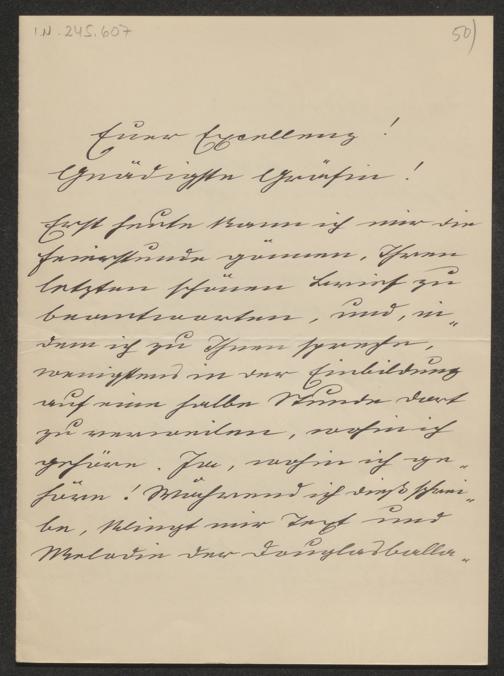 I.N. 245.607
50)
Euer Excellenz!
Gnädigste Gräfin!
Erst heute kann ich mir die
Feierstunde gönnen, Ihren
letzten schönen Brief zu
beantworten, und, in-
dem ich zu Ihnen spreche,
wenigstens in der Einbildung
auf eine halbe Stunde dort
zu verweilen, wohin ich
gehöre. Ja, wohin ich ge-
höre! Während ich dieß schrei-
be, klingt mir Text und
Melodie der Douglasballa-